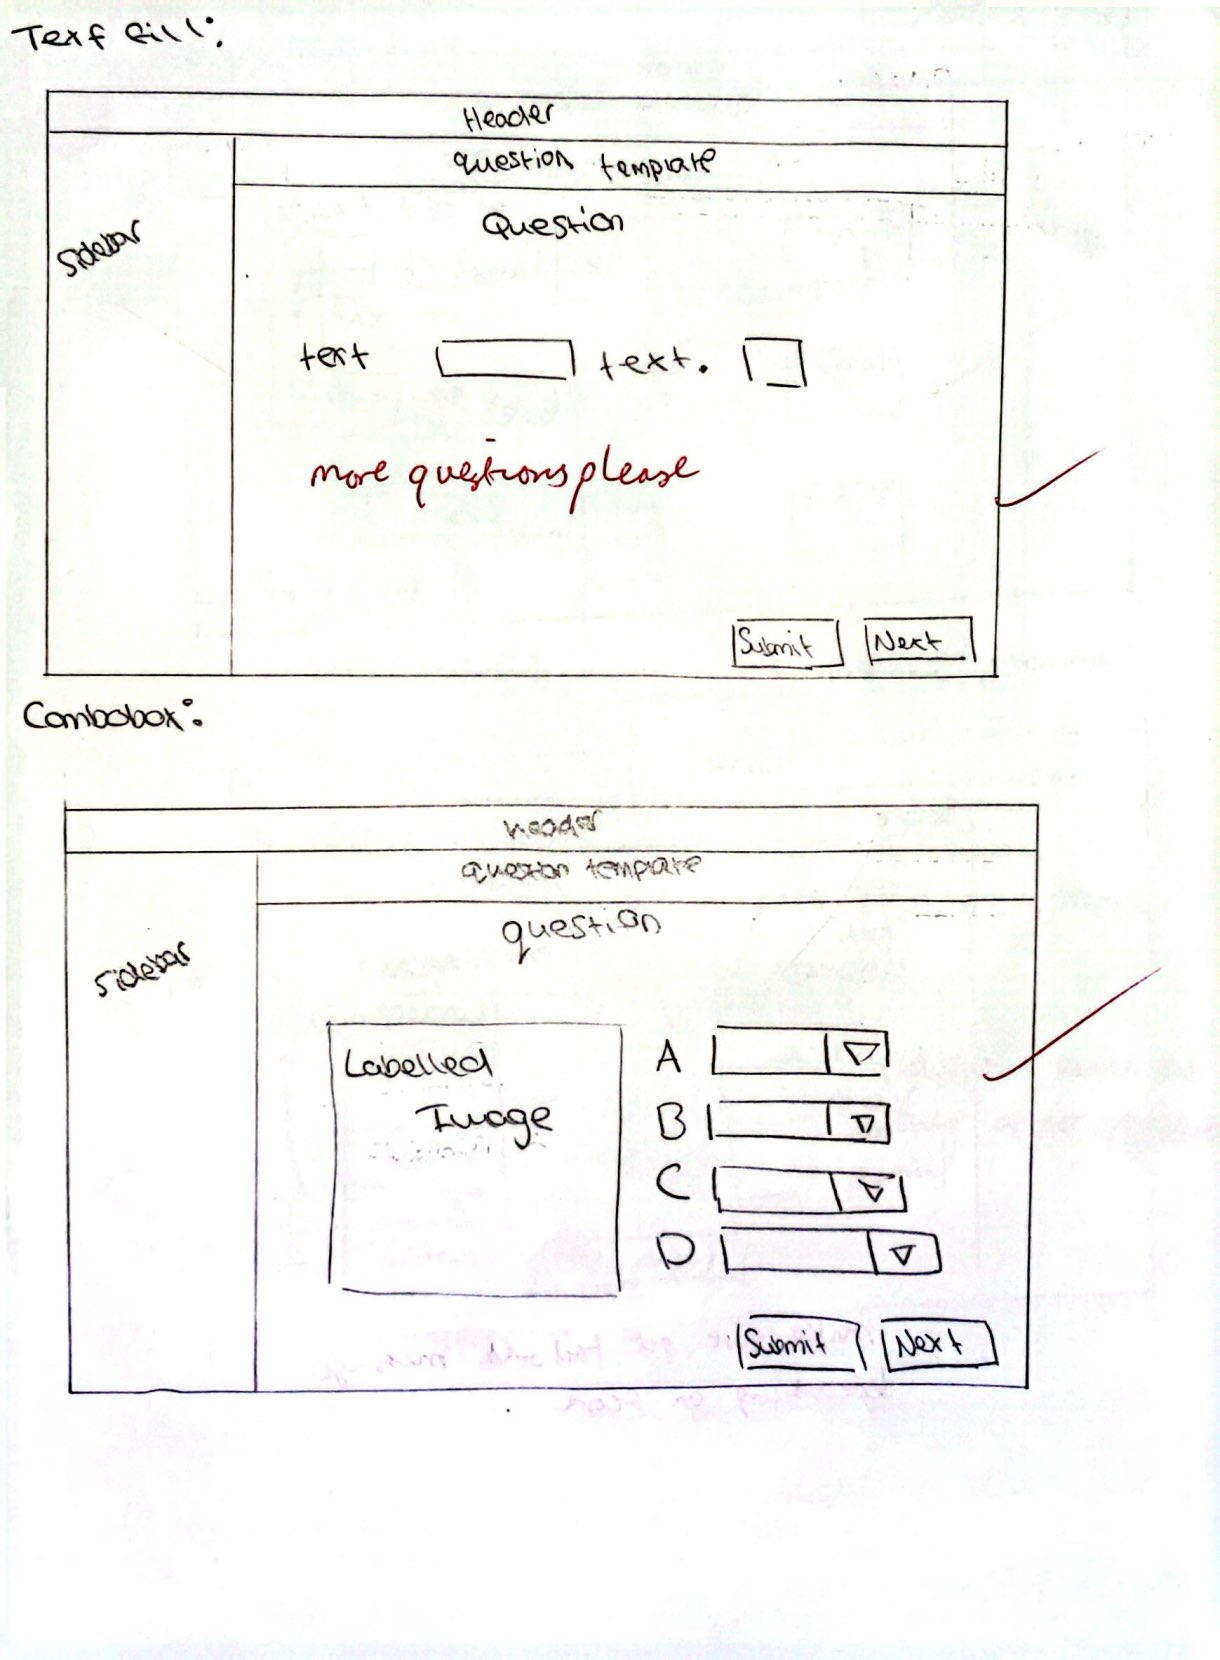 Text fill:
Header
question template
Question
sidebar
text text.
more questions please
Submit Next
Combobox:
header
question template
question
sidebar
Labelled
Image
A
B
C
D
Submit Next